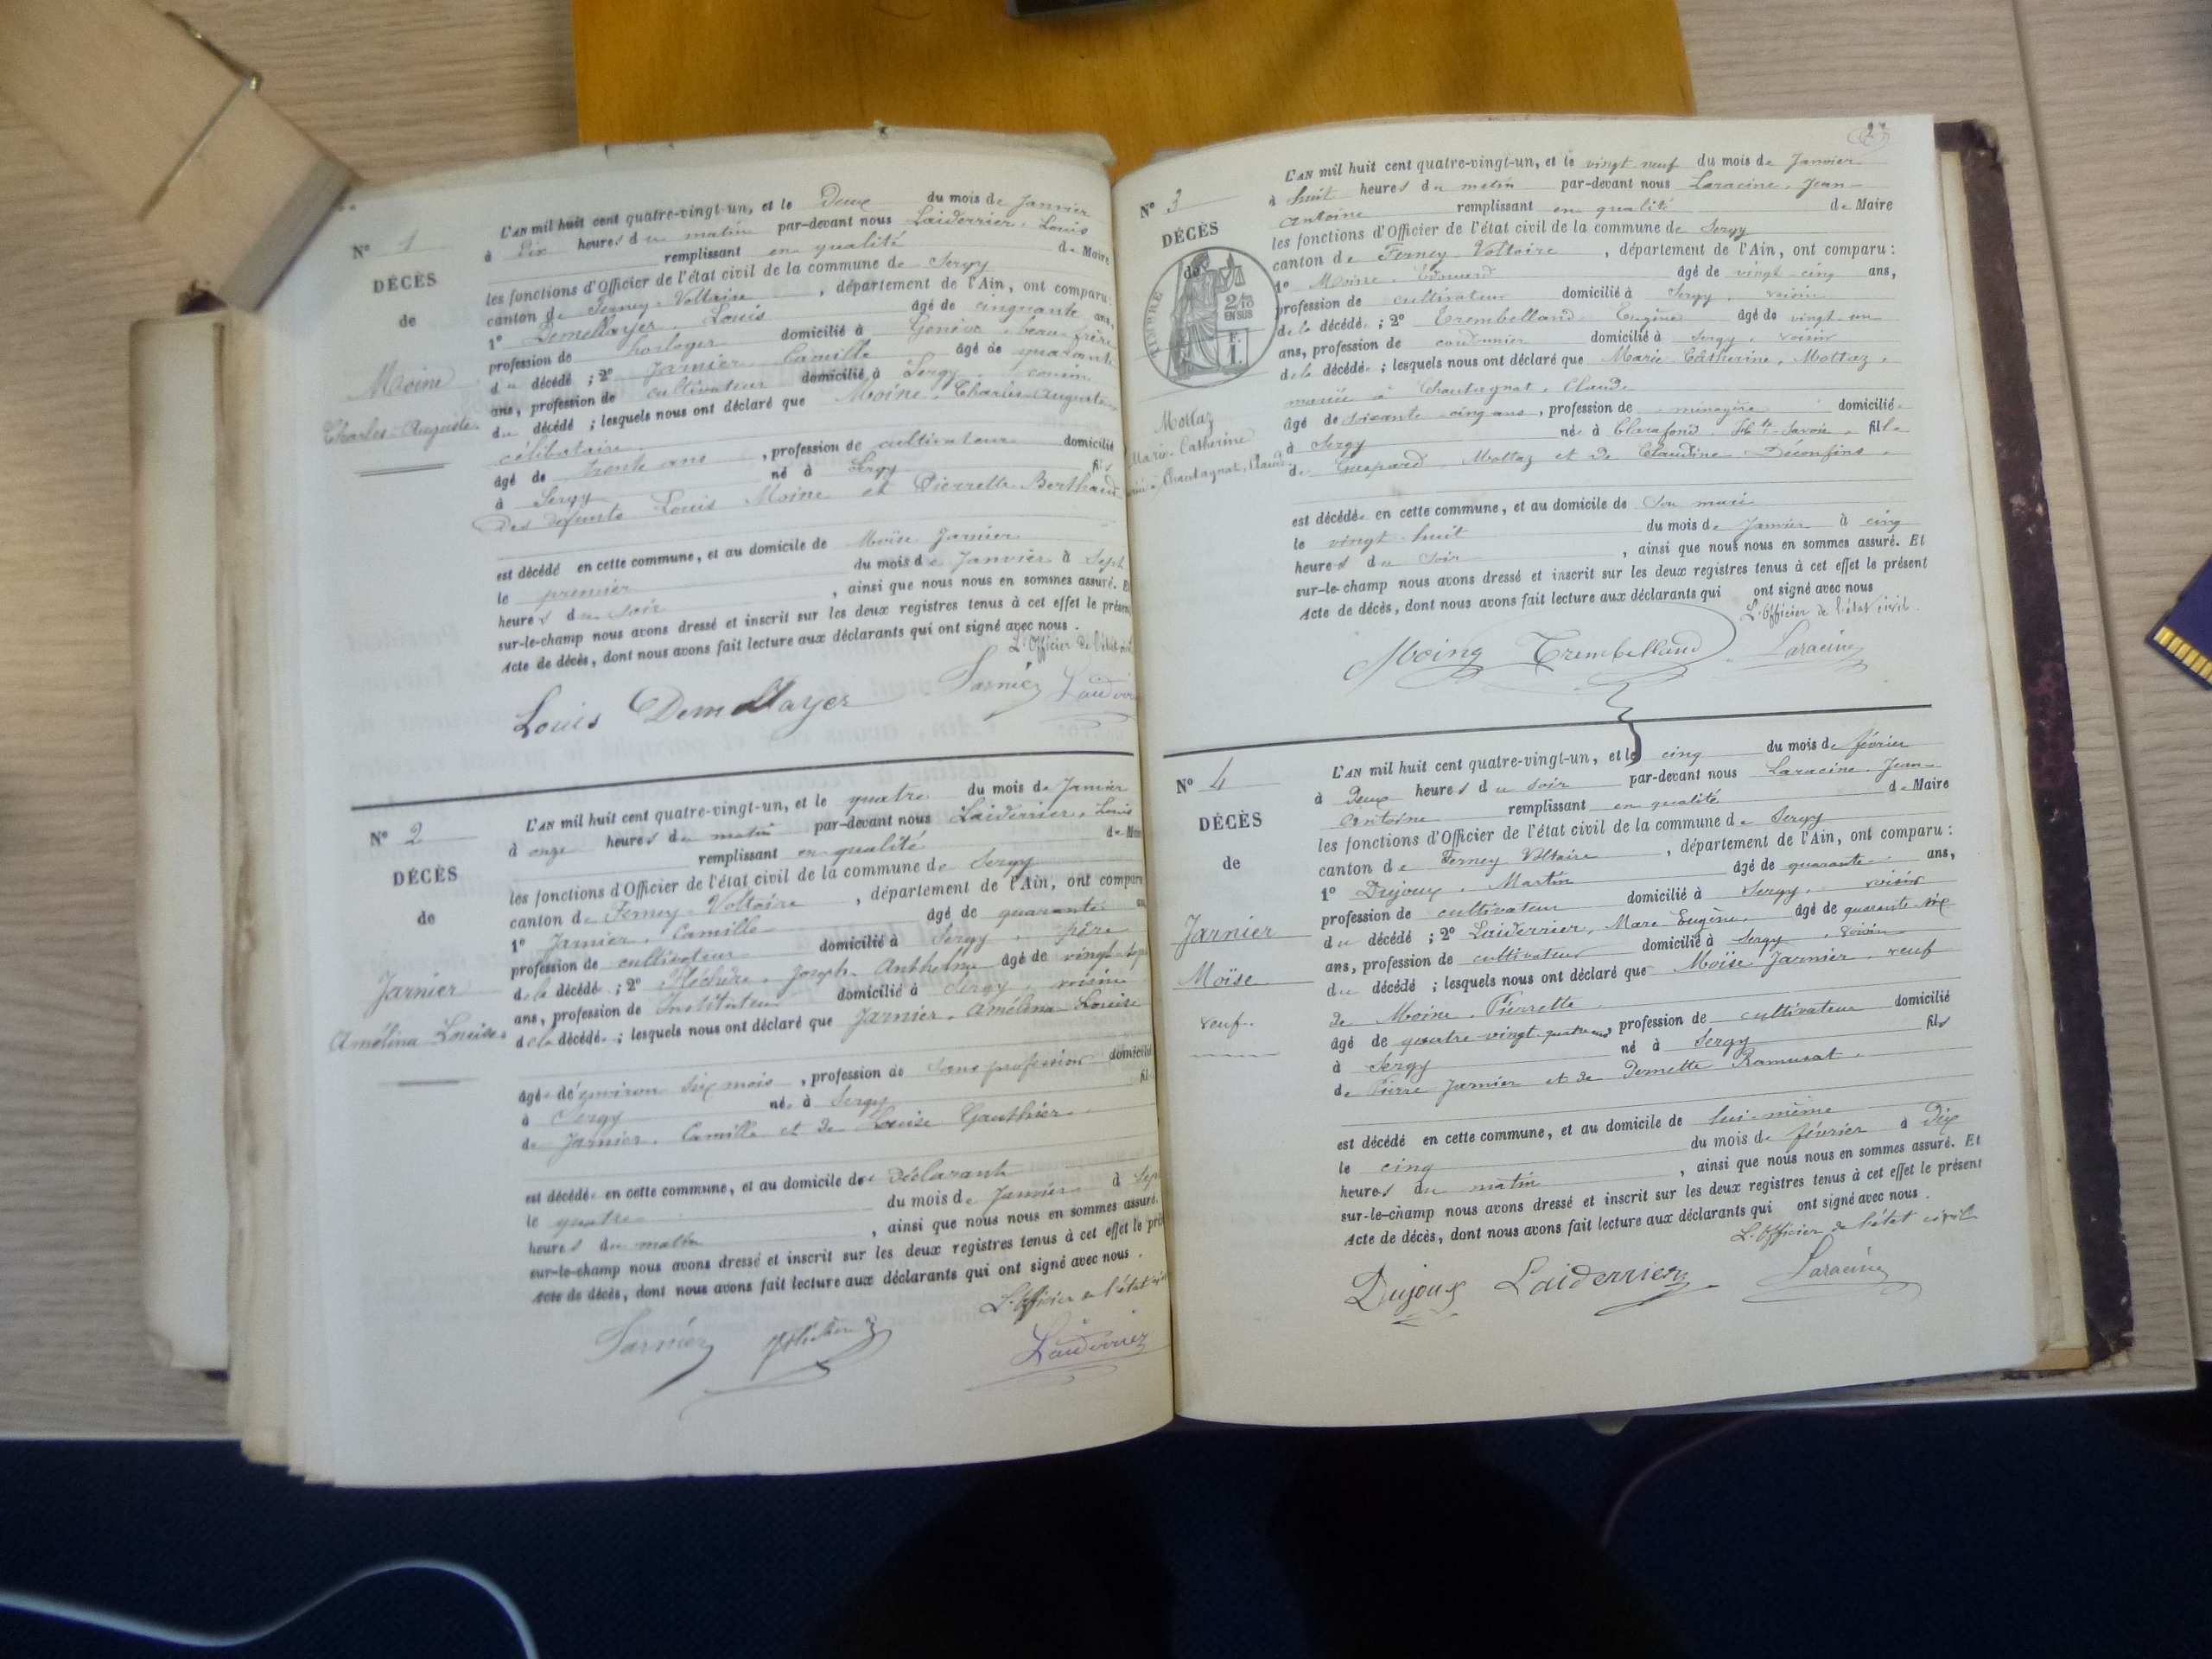 N° 1
DÉCÈS
de
Moine
Charles-Auguste
L'AN mil huit cent quatre-vingt-un, et le Deux du mois de Janvier
à Dix heures du matin par-devant nous Laiderrier, Louis
remplissant en qualité de Maire
les fonctions d'Officier de l'état civil de la commune de Sergy
canton de Ferney-Voltaire, département de l'Ain, ont comparu:
1° DemeMayer Louis âgé de cinquante ans,
profession de horloger domicilié à Genève, beau-frère
du décédé; 2° Jarnier Camille âgé de quarante
ans, profession de cultivateur domicilié à Sergy, cousin
du décédé; lesquels nous ont déclaré que Moine, Charles-Auguste
célibataire
âgé de trente ans, profession de cultivateur domicilié
à Sergy né à Sergy fils
Des défunts Louis Moine et Pierrette Berthaud
est décédé en cette commune, et au domicile de Moïse Jarnier
le premier du mois de Janvier à Sept
heures du soir, ainsi que nous nous en sommes assuré. Et
sur-le-champ nous avons dressé et inscrit sur les deux registres tenus à cet effet le présent
Acte de décès, dont nous avons fait lecture aux déclarants qui ont signé avec nous.
L'Officier de l'état civil
Louis DemeMayer Jarnier Laiderrier
N° 2
DÉCÈS
de
Jarnier
Amélina Louise
L'AN mil huit cent quatre-vingt-un, et le quatre du mois de Janvier
à onze heures du matin par-devant nous Laiderrier, Louis
remplissant en qualité de Maire
les fonctions d'Officier de l'état civil de la commune de Sergy
canton de Ferney-Voltaire, département de l'Ain, ont comparu
1° Jarnier, Camille âgé de quarante
profession de cultivateur domicilié à Sergy, père
de la décédée; 2° Joseph Anthelme âgé de vingt-sept
ans, profession de Instituteur domicilié à Sergy, voisin
de la décédée; lesquels nous ont déclaré que Jarnier, Amélina Louise
âgée d'environ Six mois, profession de Sans profession domiciliée
à Sergy née à Sergy
de Jarnier, Camille et de Louise Gauthier
est décédée en cette commune, et au domicile du Déclarant
le quatre du mois de Janvier à Sept
heures du matin, ainsi que nous nous en sommes assuré.
sur-le-champ nous avons dressé et inscrit sur les deux registres tenus à cet effet le pré
Acte de décès, dont nous avons fait lecture aux déclarants qui ont signé avec nous.
L'Officier de l'état civil
Jarnier Laiderrier
2
N° 3
DÉCÈS
de
TIMBRE
2/10
EN SUS
F.
1.
Mottaz
Marie-Catherine
Chautagnat, Claude
L'AN mil huit cent quatre-vingt-un, et le vingt neuf du mois de Janvier
à huit heures du matin par-devant nous Laracine, Jean-
Antoine remplissant en qualité de Maire
les fonctions d'Officier de l'état civil de la commune de Sergy
canton de Ferney Voltaire, département de l'Ain, ont comparu:
1° Moine, Edouard âgé de vingt-cinq ans,
profession de cultivateur domicilié à Sergy, voisin
de la décédée; 2° Trembelland Eugène âgé de vingt-un
ans, profession de cordonnier domicilié à Sergy, voisin
de la décédée; lesquels nous ont déclaré que Marie Catherine, Mottaz,
mariée à Chautagnat, Claude
âgée de soixante-cinq ans, profession de ménagère domiciliée
à Sergy née à Clarafond, Hte-Savoie, fille
de Gaspard Mottaz et de Claudine Déconfins
est décédée en cette commune, et au domicile de Son mari
le vingt-huit du mois de Janvier à cinq
heures du soir, ainsi que nous nous en sommes assuré. Et
sur-le-champ nous avons dressé et inscrit sur les deux registres tenus à cet effet le présent
Acte de décès, dont nous avons fait lecture aux déclarants qui ont signé avec nous
L'Officier de l'état civil.
Moine Trembelland Laracine
N° 4
DÉCÈS
de
Jarnier
Moïse
veuf
L'AN mil huit cent quatre-vingt-un, et le cinq du mois de février
à Deux heures du soir par-devant nous Laracine, Jean-
Antoine remplissant en qualité de Maire
les fonctions d'Officier de l'état civil de la commune de Sergy
canton de Ferney Voltaire, département de l'Ain, ont comparu:
1° Dujoux, Martin âgé de quarante ans,
profession de cultivateur domicilié à Sergy, voisin
du décédé; 2° Laiderrier, Marc Eugène, âgé de quarante-six
ans, profession de cultivateur domicilié à Sergy, voisin
du décédé; lesquels nous ont déclaré que Moïse Jarnier, veuf
de Moine, Pierrette
âgé de quatre-vingt-quatre ans, profession de cultivateur domicilié
à Sergy né à Sergy fils
de Pierre Jarnier et de Pernette Ramusat.
est décédé en cette commune, et au domicile de lui-même
le cinq du mois de février à Dix
heures du matin, ainsi que nous nous en sommes assuré. Et
sur-le-champ nous avons dressé et inscrit sur les deux registres tenus à cet effet le présent
Acte de décès, dont nous avons fait lecture aux déclarants qui ont signé avec nous.
L'Officier de l'état civil
Dujoux Laiderrier Laracine